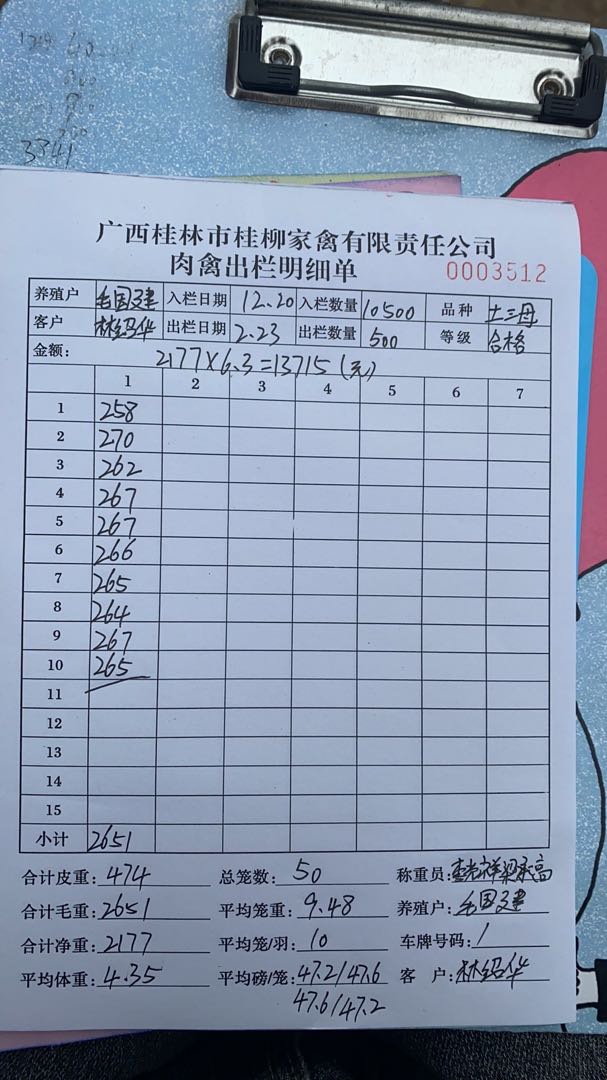 3341
广西桂林市桂柳家禽有限责任公司
肉禽出栏明细单 0003512
养殖户 毛国建 入栏日期 12.20 入栏数量 10500 品种 土三母
客户 林绍华 出栏日期 2.23 出栏数量 500 等级 合格
金额: 2177×6.3=13715(元)
1 2 3 4 5 6 7
1 258
2 270
3 262
4 267
5 267
6 266
7 265
8 264
9 267
10 265
11
12
13
14
15
小计 2651
合计皮重: 474 总笼数: 50 称重员:
合计毛重: 2651 平均笼重: 9.48 养殖户: 毛国建
合计净重: 2177 平均笼/羽: 10 车牌号码: /
平均体重: 4.35 平均磅/笼: 47.2/47.6 客户: 林绍华
47.6/47.2